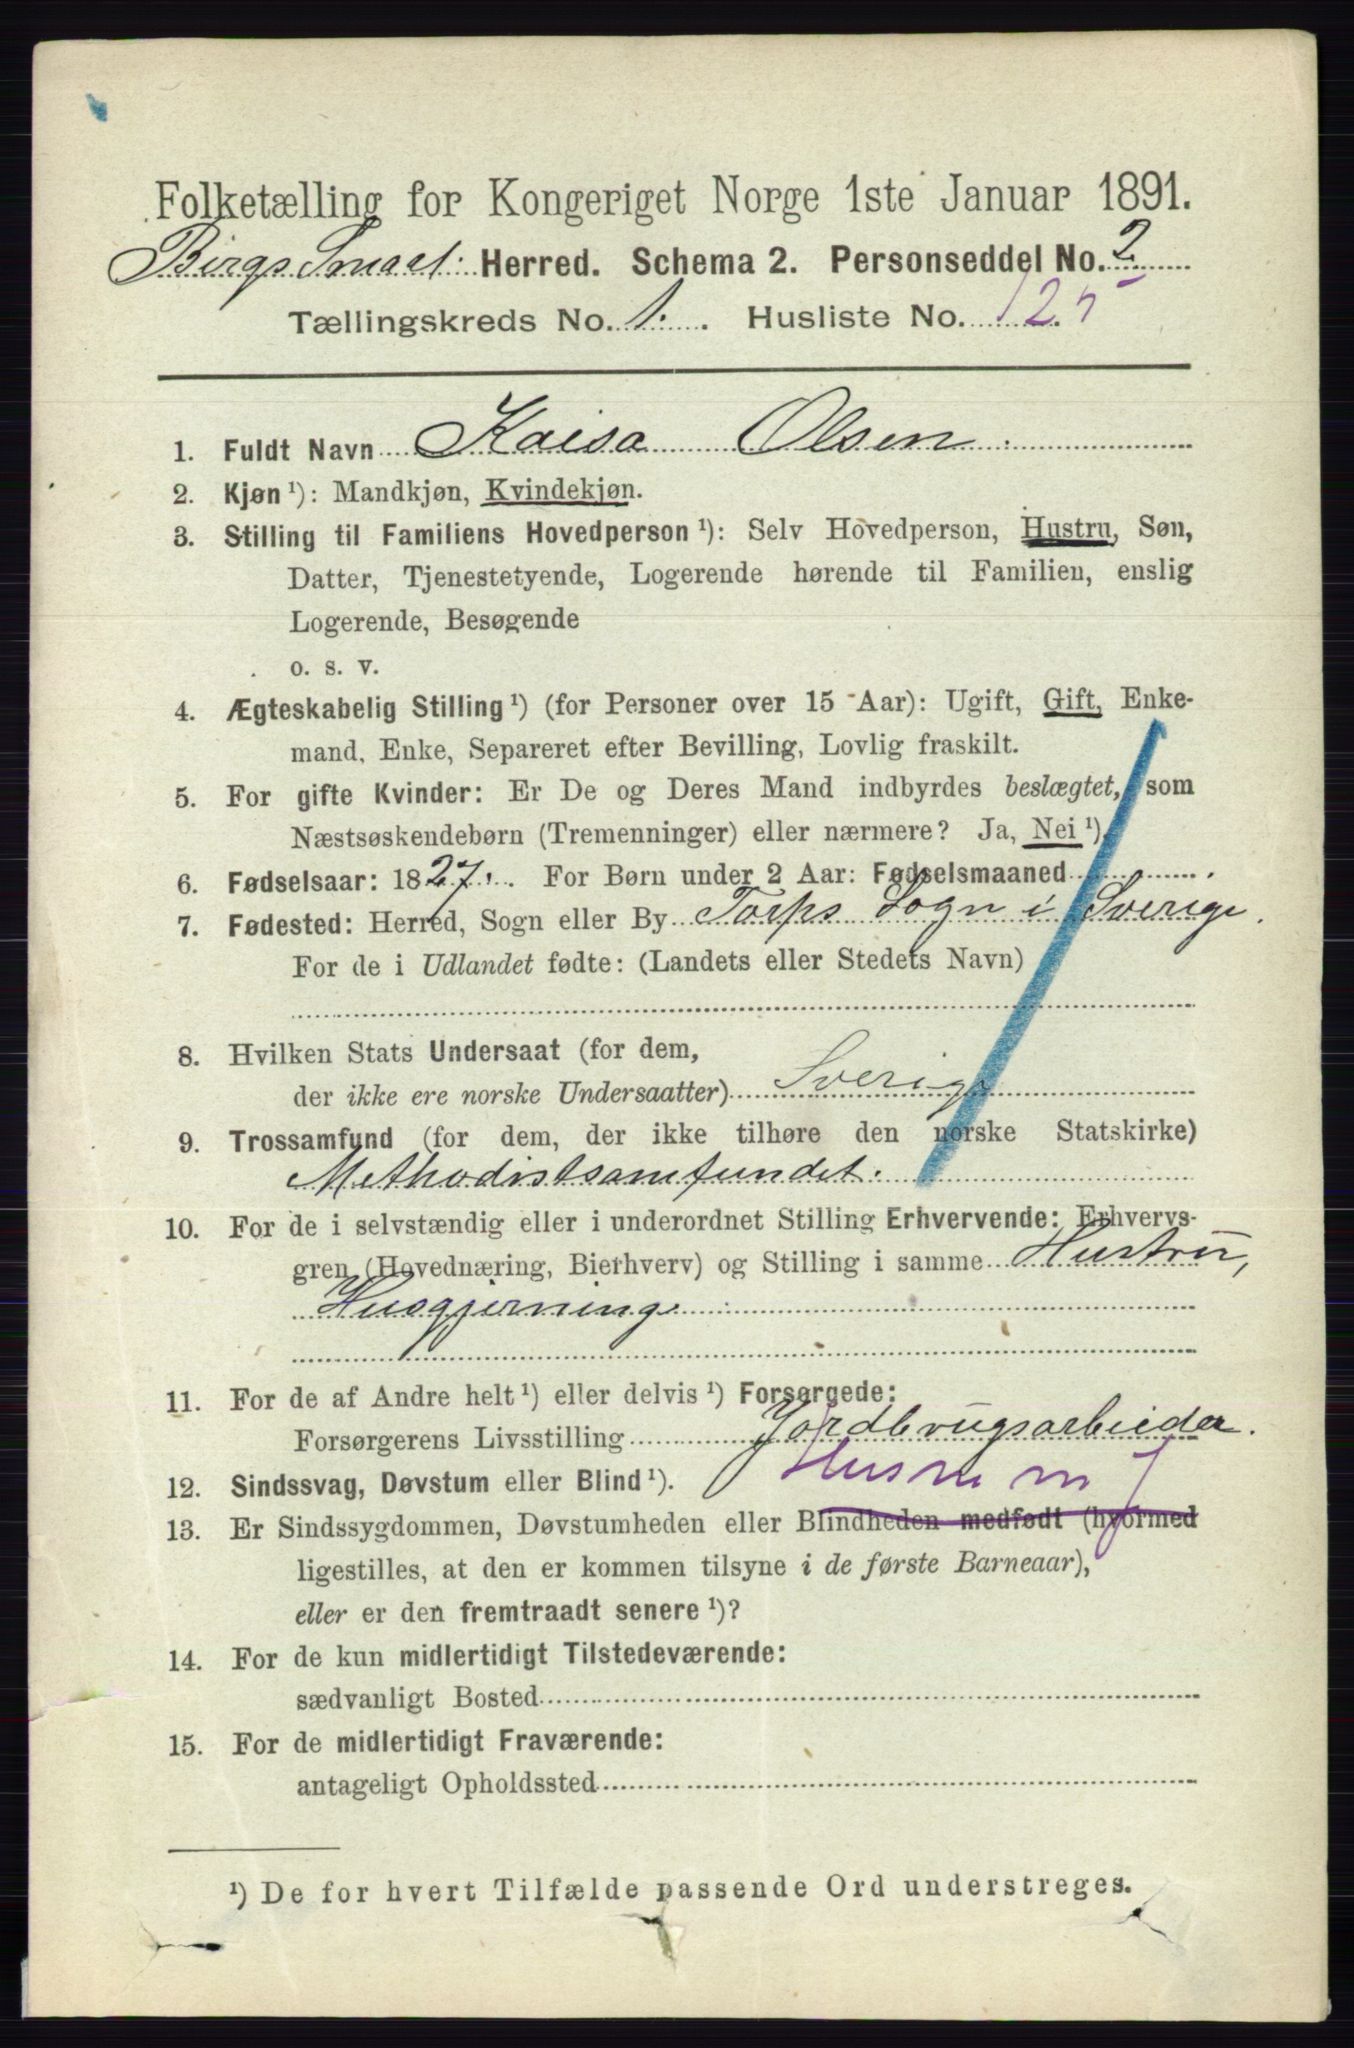 Folketælling for Kongeriget Norge 1ste Januar 1891.
Herred. Schema 2. Personseddel No. 2
Tællingskreds No. 1. Husliste No. 125
1. Fuldt Navn Kaisa Olsen
2. Kjøn ¹): Mandkjøn, Kvindekjøn.
3. Stilling til Familiens Hovedperson ¹): Selv Hovedperson, Hustru, Søn,
Datter, Tjenestetyende, Logerende hørende til Familien, enslig
Logerende, Besøgende
o. s. v.
4. Ægteskabelig Stilling ¹) (for Personer over 15 Aar): Ugift, Gift, Enke-
mand, Enke, Separeret efter Bevilling, Lovlig fraskilt.
5. For gifte Kvinder: Er De og Deres Mand indbyrdes beslægtet, som
Næstsøskendebørn (Tremenninger) eller nærmere? Ja, Nei ¹).
6. Fødselsaar: 1827. For Børn under 2 Aar: Fødselsmaaned
7. Fødested: Herred, Sogn eller By Torps Sogn i Sverige.
For de i Udlandet fødte: (Landets eller Stedets Navn)
8. Hvilken Stats Undersaat (for dem,
der ikke ere norske Undersaatter) Sverige
9. Trossamfund (for dem, der ikke tilhøre den norske Statskirke)
Methodistsamfundet.
10. For de i selvstændig eller i underordnet Stilling Erhvervende: Erhvervs-
gren (Hovednæring, Bierhverv) og Stilling i samme Hustru,
Husgjerning
11. For de af Andre helt ¹) eller delvis ¹) Forsørgede:
Forsørgerens Livsstilling Jordbrugsarbeider.
12. Sindssvag, Døvstum eller Blind ¹).
13. Er Sindssygdommen, Døvstumheden eller Blindheden medfødt (hvormed
ligestilles, at den er kommen tilsyne i de første Barneaar),
eller er den fremtraadt senere ¹)?
14. For de kun midlertidigt Tilstedeværende:
sædvanligt Bosted
15. For de midlertidigt Fraværende:
antageligt Opholdssted
¹) De for hvert Tilfælde passende Ord understreges.